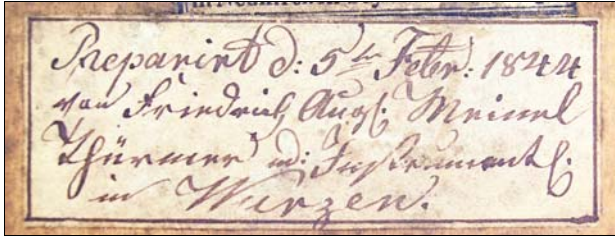 Reparirt d: 5ten Febr: 1844
von Friedrich Aug. Meinel
Thürmer u: Instrumentl.
in Wurzen.